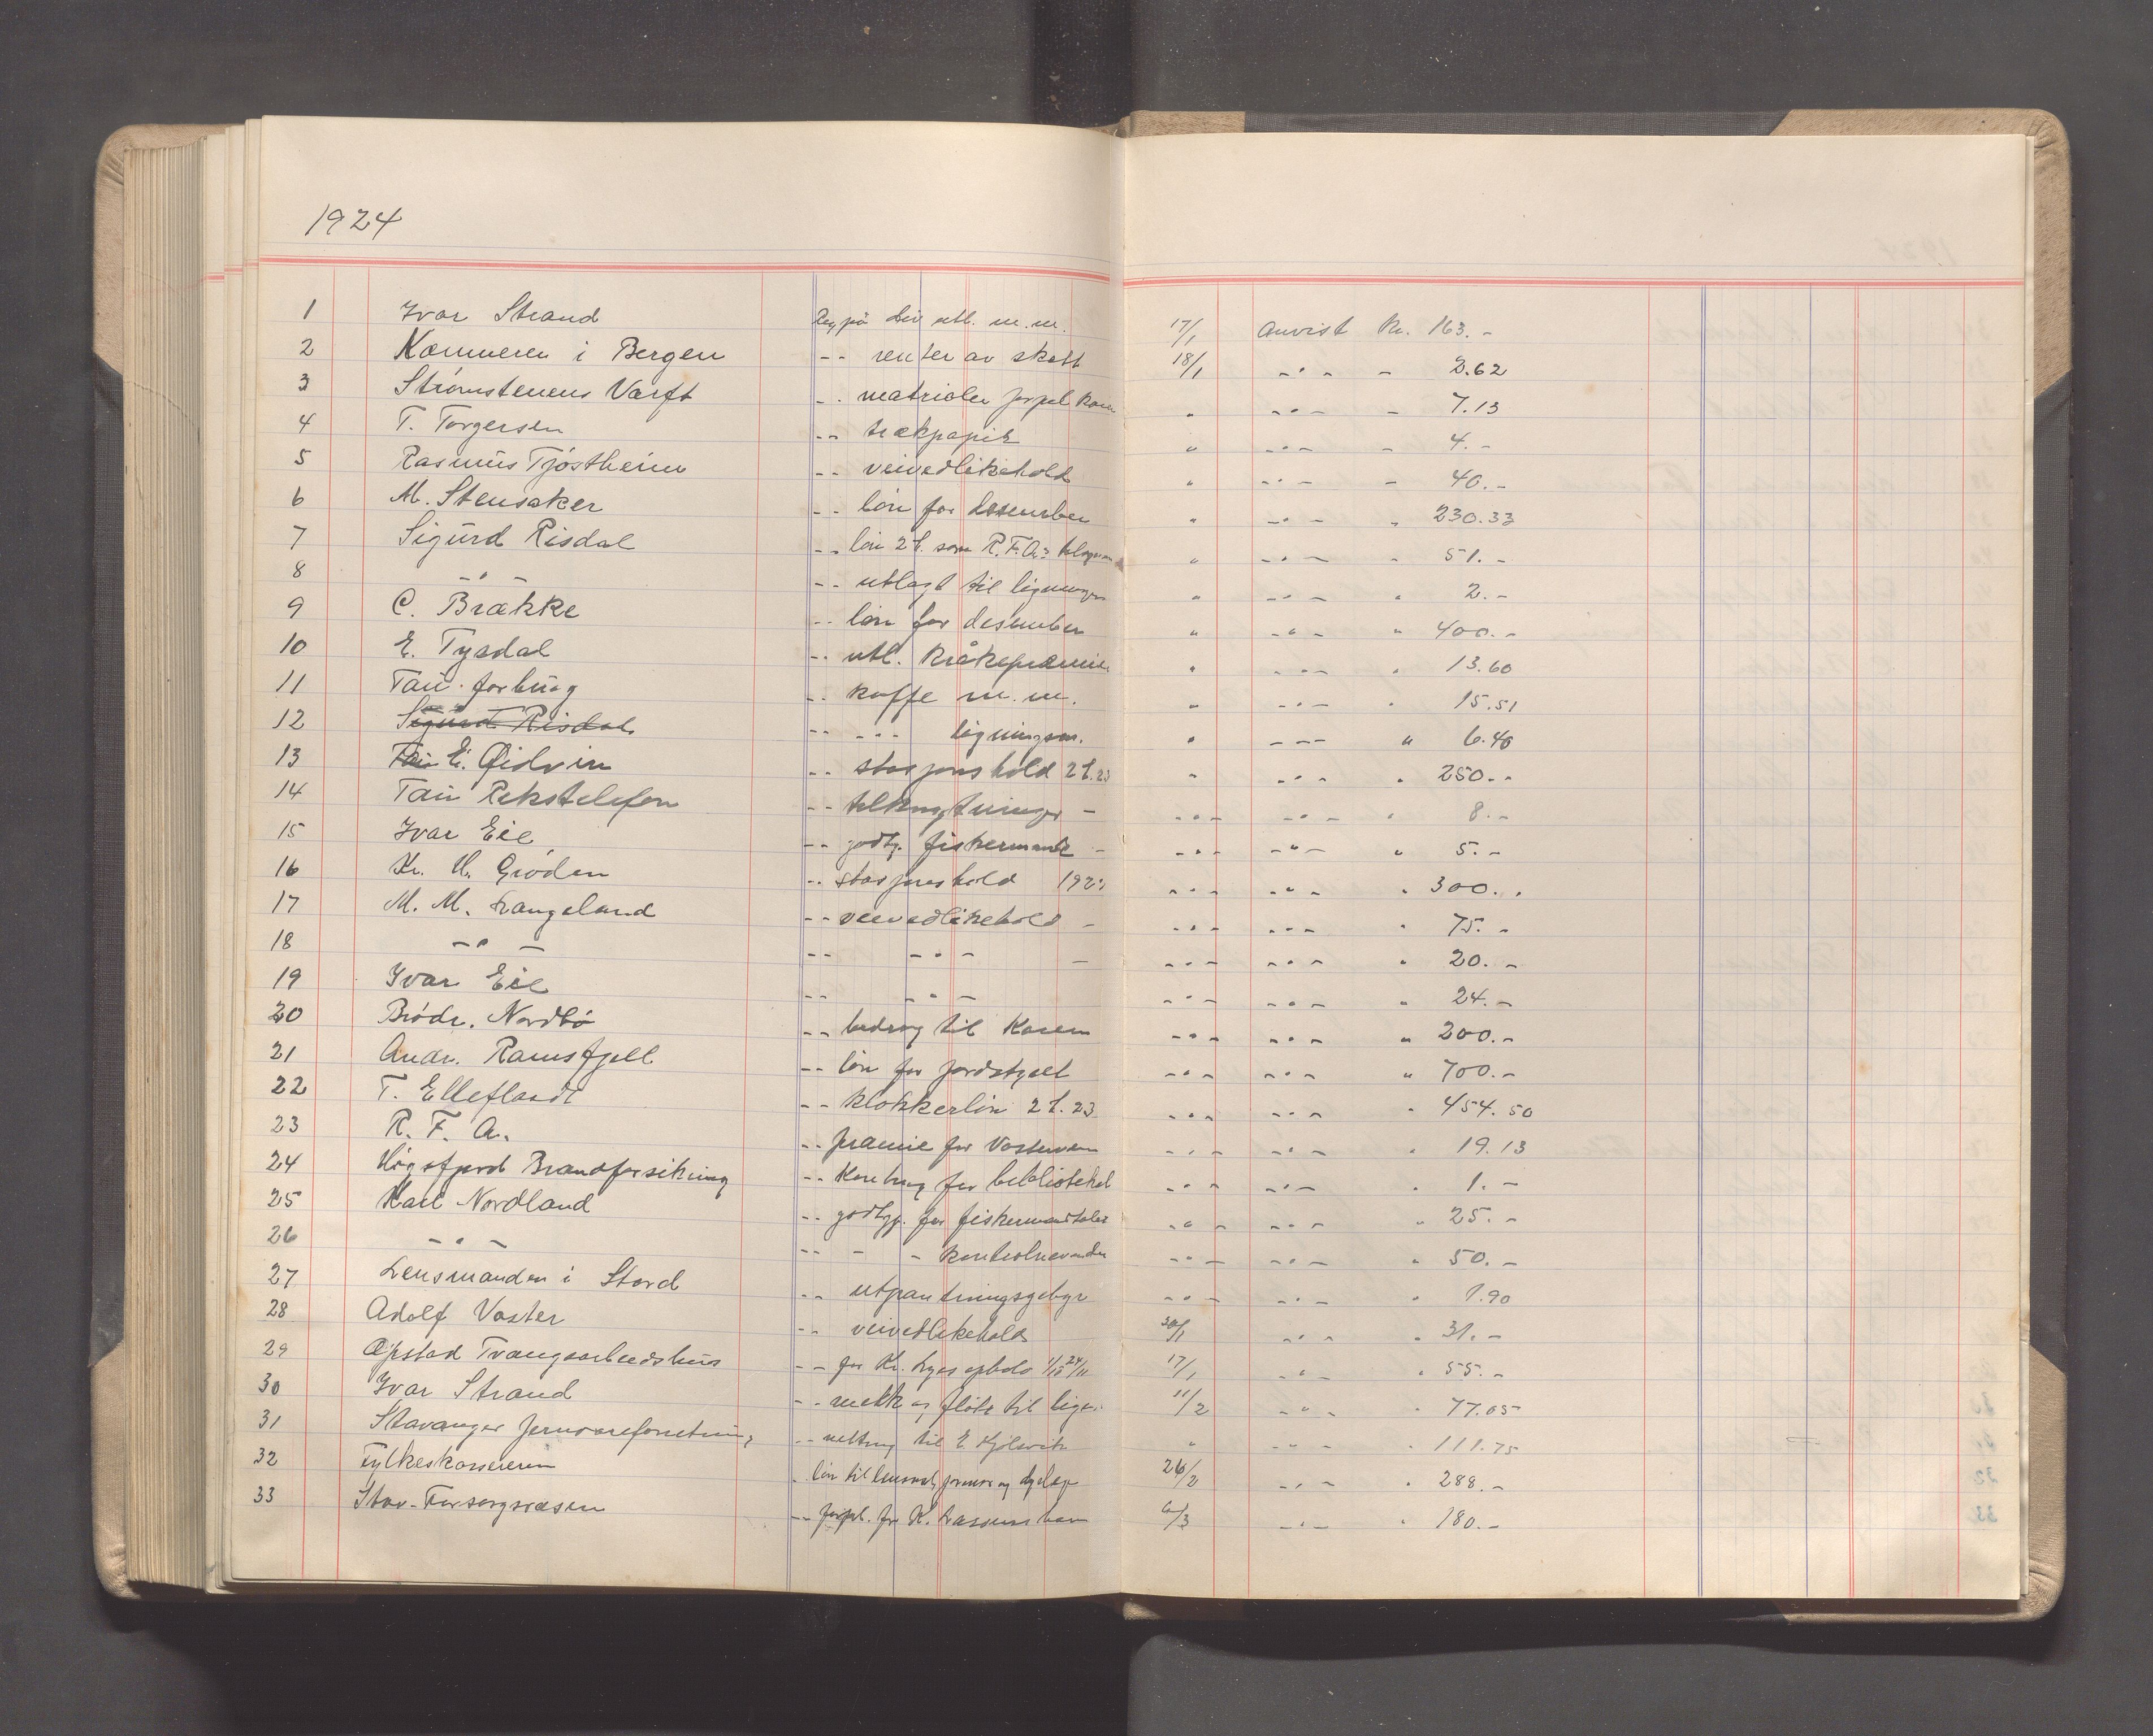 1924
1 Ivar Strand Reg. på div utl. m.m. 17/1 Anvist Kr. 163.-
2 Kæmneren i Bergen -- renter av skatt 18/1 -"- - 2.62
3 Strømstenens Varft -- matrialer " -"- - 7.13
4 T. Torgersen -- trækpapir " -"- - 4.-
5 Rasmus Tjøstheim -- veivedlikehold " -"- - 40.-
6 M. Stensaker -- løn for desember " -"- " 230.33
7 Sigurd Risdal -- løn 2 h. som R.F.A.s " -"- " 51.-
8 -"- -- utlagt til ligningen " -"- " 2.-
9 C. Brække -- løn for desember " -"- " 400.-
10 E. Tysdal -- utl. kråkepræmier " -"- " 13.60
11 Tau forbrug -- kaffe m.m. " -"- " 15.51
12 Sigurd Risdal -- -"- ligningsm. " -"- " 6.40
13 E. Eidvin -- stasjonshold 2 h. 23 " -"- " 250.-
14 Tau Rikstelefon -- tilknytninger - -"- -"- " 8.-
15 Ivar Eie -- godtg. fiskermant - -"- -"- " 5.-
16 Kr. H. Grøden -- stasjonshold 1923 -"- -"- " 300.-
17 M. M. Langeland -- veivedlikehold - -"- -"- " 75.-
18 -"- -- -"- - -"- -"- " 20.-
19 Ivar Eie -- -"- -"- -"- " 24.-
20 Brødr. Nordbø -- bedrag til Kaien -"- -"- " 200.-
21 Andr. Ramsfjell -- løn for jordstyret -"- -"- " 700.-
22 T. Elleflaadt -- klokkerløn 2 h. 23 -"- -"- " 454.50
23 R. F. A. -- præmie for -"- -"- " 19.13
24 Høgsfjord Brandforsikring -- for biblioteket -"- -"- " 1.-
25 Karl Nordland -- godtgj. for fiskermandtalet -"- -"- " 25.-
26 -"- -- - - kontrolnevnden -"- -"- " 50.-
27 Lensmanden i Stord -- utpantningsgebyr -"- -"- " 1.90
28 Adolf Vaster -- veivedlikehold 30/1 -"- " 31.-
29 Opstad Tvangsarbeidshus -- for Kr. Lyes ophold 1/10 24/11 17/1 -"- " 55.-
30 Ivar Strand -- melk og fløte til 11/2 -"- " 77.05
31 Stavanger Jernvareforretning -- netting til E. " -"- " 111.75
32 Fylkeskassereren -- løn til 26/2 -"- " 288.-
33 Stav. Forsorgsvæsen -- forpl. for K. Larsens barn 6/3 -"- " 180.-